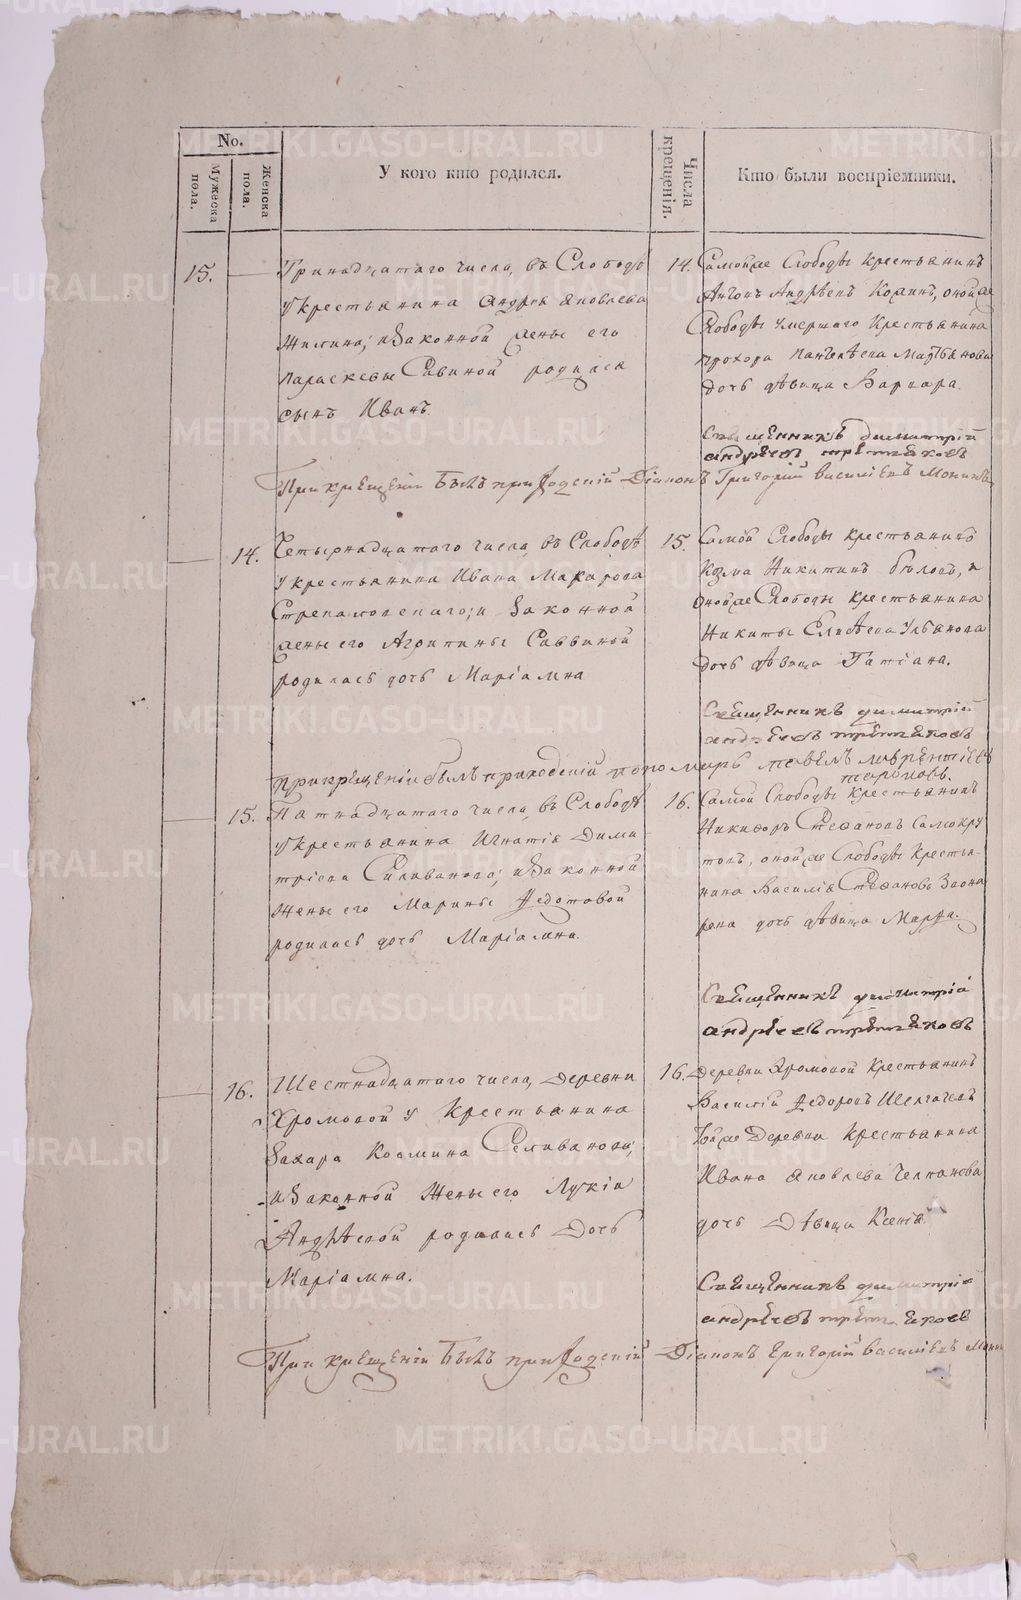 No.
Мужеска пола.
Женска пола.
У кого кто родился.
Числа крещенія.
Кто были воспріемники.
15.
Тринадцатаго числа, въ Слободѣ
у крестьянина Андрея Яковлева
Жилина; и Законной жены его
Параскевы Савиной родился
сынъ Иванъ.
14.
Самой же Слободы крестьянинъ
Антонъ Андрѣевъ, оной же
Слободы умершаго Крестьянина
Прохора Пантелѣева
дочь дѣвица Варвара.
Священникъ Димитрій
Андрѣевъ Третьяковъ
При крещеніи былъ приходскій Діаконъ Григорій Василіевъ
14.
Четырнадцатаго числа, въ Слободѣ
у крестьянина Ивана Макарова
и Законной
жены его Агрипины Саввиной
родилась дочь Маріамна
15.
Самой Слободы крестьянинъ
Козма Никитинъ Бѣловъ, и
оной же Слободы крестьянина
Никиты Елисѣева Ульянова
дочь дѣвица Татіана.
Священникъ Димитрій
Андрѣевъ Третьяковъ
При крещеніи былъ приходскій пономарь Павелъ Лаврентіевъ
15.
Пятнадцатаго числа, въ Слободѣ
у крестьянина Игнатія Дими
тріева Силиванова; и Законной
жены его Марины Федотовой
родилась дочь Маріамна.
16.
Самой Слободы Крестьянинъ
Никифоръ Стефановъ Самокру
товъ, оной же Слободы Крестья-
нина Василія Стефанова
дочь дѣвица Марфа.
Священникъ Димитрій
Андрѣевъ Третьяковъ
16.
Шестнадцатаго числа, деревни
Хромовой у Крестьянина
Захара Космина Селиванова;
и Законной жены его Лукіи
Андрѣевой родилась Дочь
Маріамна.
16.
Деревни Хромовой Крестьянинъ
Василій Федоровъ
той же Деревни Крестьянина
Ивана Яковлева Челпанова
дочь Дѣвица Ксенія
Священникъ Димитрій
Андрѣевъ Третьяковъ
При крещеніи былъ приходскій Діаконъ Григорій Василіевъ
METRIKI.GASO-URAL.RU